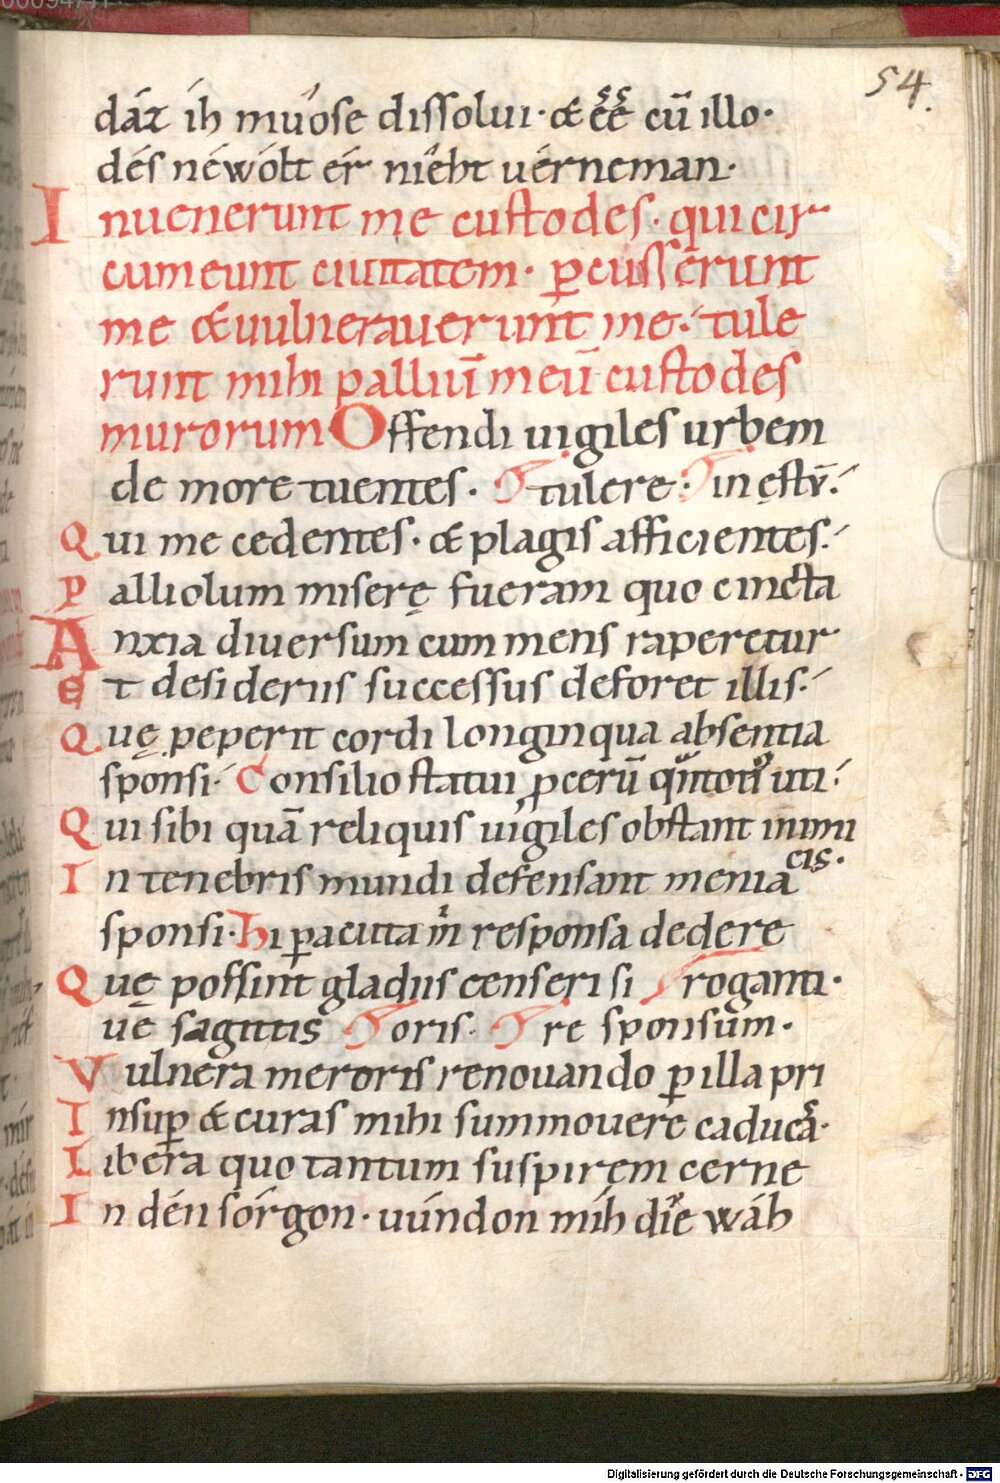 54.
dáz íh mvͦose dissolui· & ee̅ cū illo·
dés néwólt ér nîeht uérneman·
Inuenerunt me custodes· qui cir
cumeunt ciuitatem· ꝑcusserunt
me &uulnerauerunt me· tule
runt mihi palliū meū custodes
murorum Offendi uigiles urbem
de more tuentes·
Qui me cedentes· & plagis afficientes·
Palliolum miserę fueram quo cincta
Anxia diuersum cum mens raperetur
Et desideriis successus deforet illis·
Quę peperit cordi longinqua absentia
sponsi· Consilio statui ꝓcerū uti·
Qui sibi quā reliquis uigiles obstant inimi
cis·
In tenebris mundi defensant menia
sponsi· Hi ꝑacuta responsa dedere
Quę possint gladiis censeri si roganti·
ue sagittis oris· re sponsum·
Vulnera meroris renouando ꝑ illa pri
Insuꝑ & curas mihi summouere caduca·
Libera quo tantum suspirem cerne
In dén sórgon· uúndon míh dîe wáh
Digitalisierung gefördert durch die Deutsche Forschungsgemeinschaft - DFG